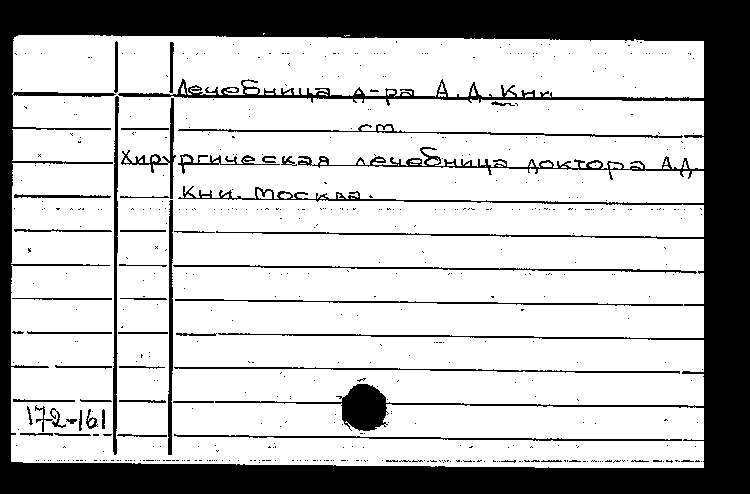 Лечебница д-ра А.Д. Кни
ст.
Хирургическая лечебница доктора А.Д.
Кни. Москва.
172-161